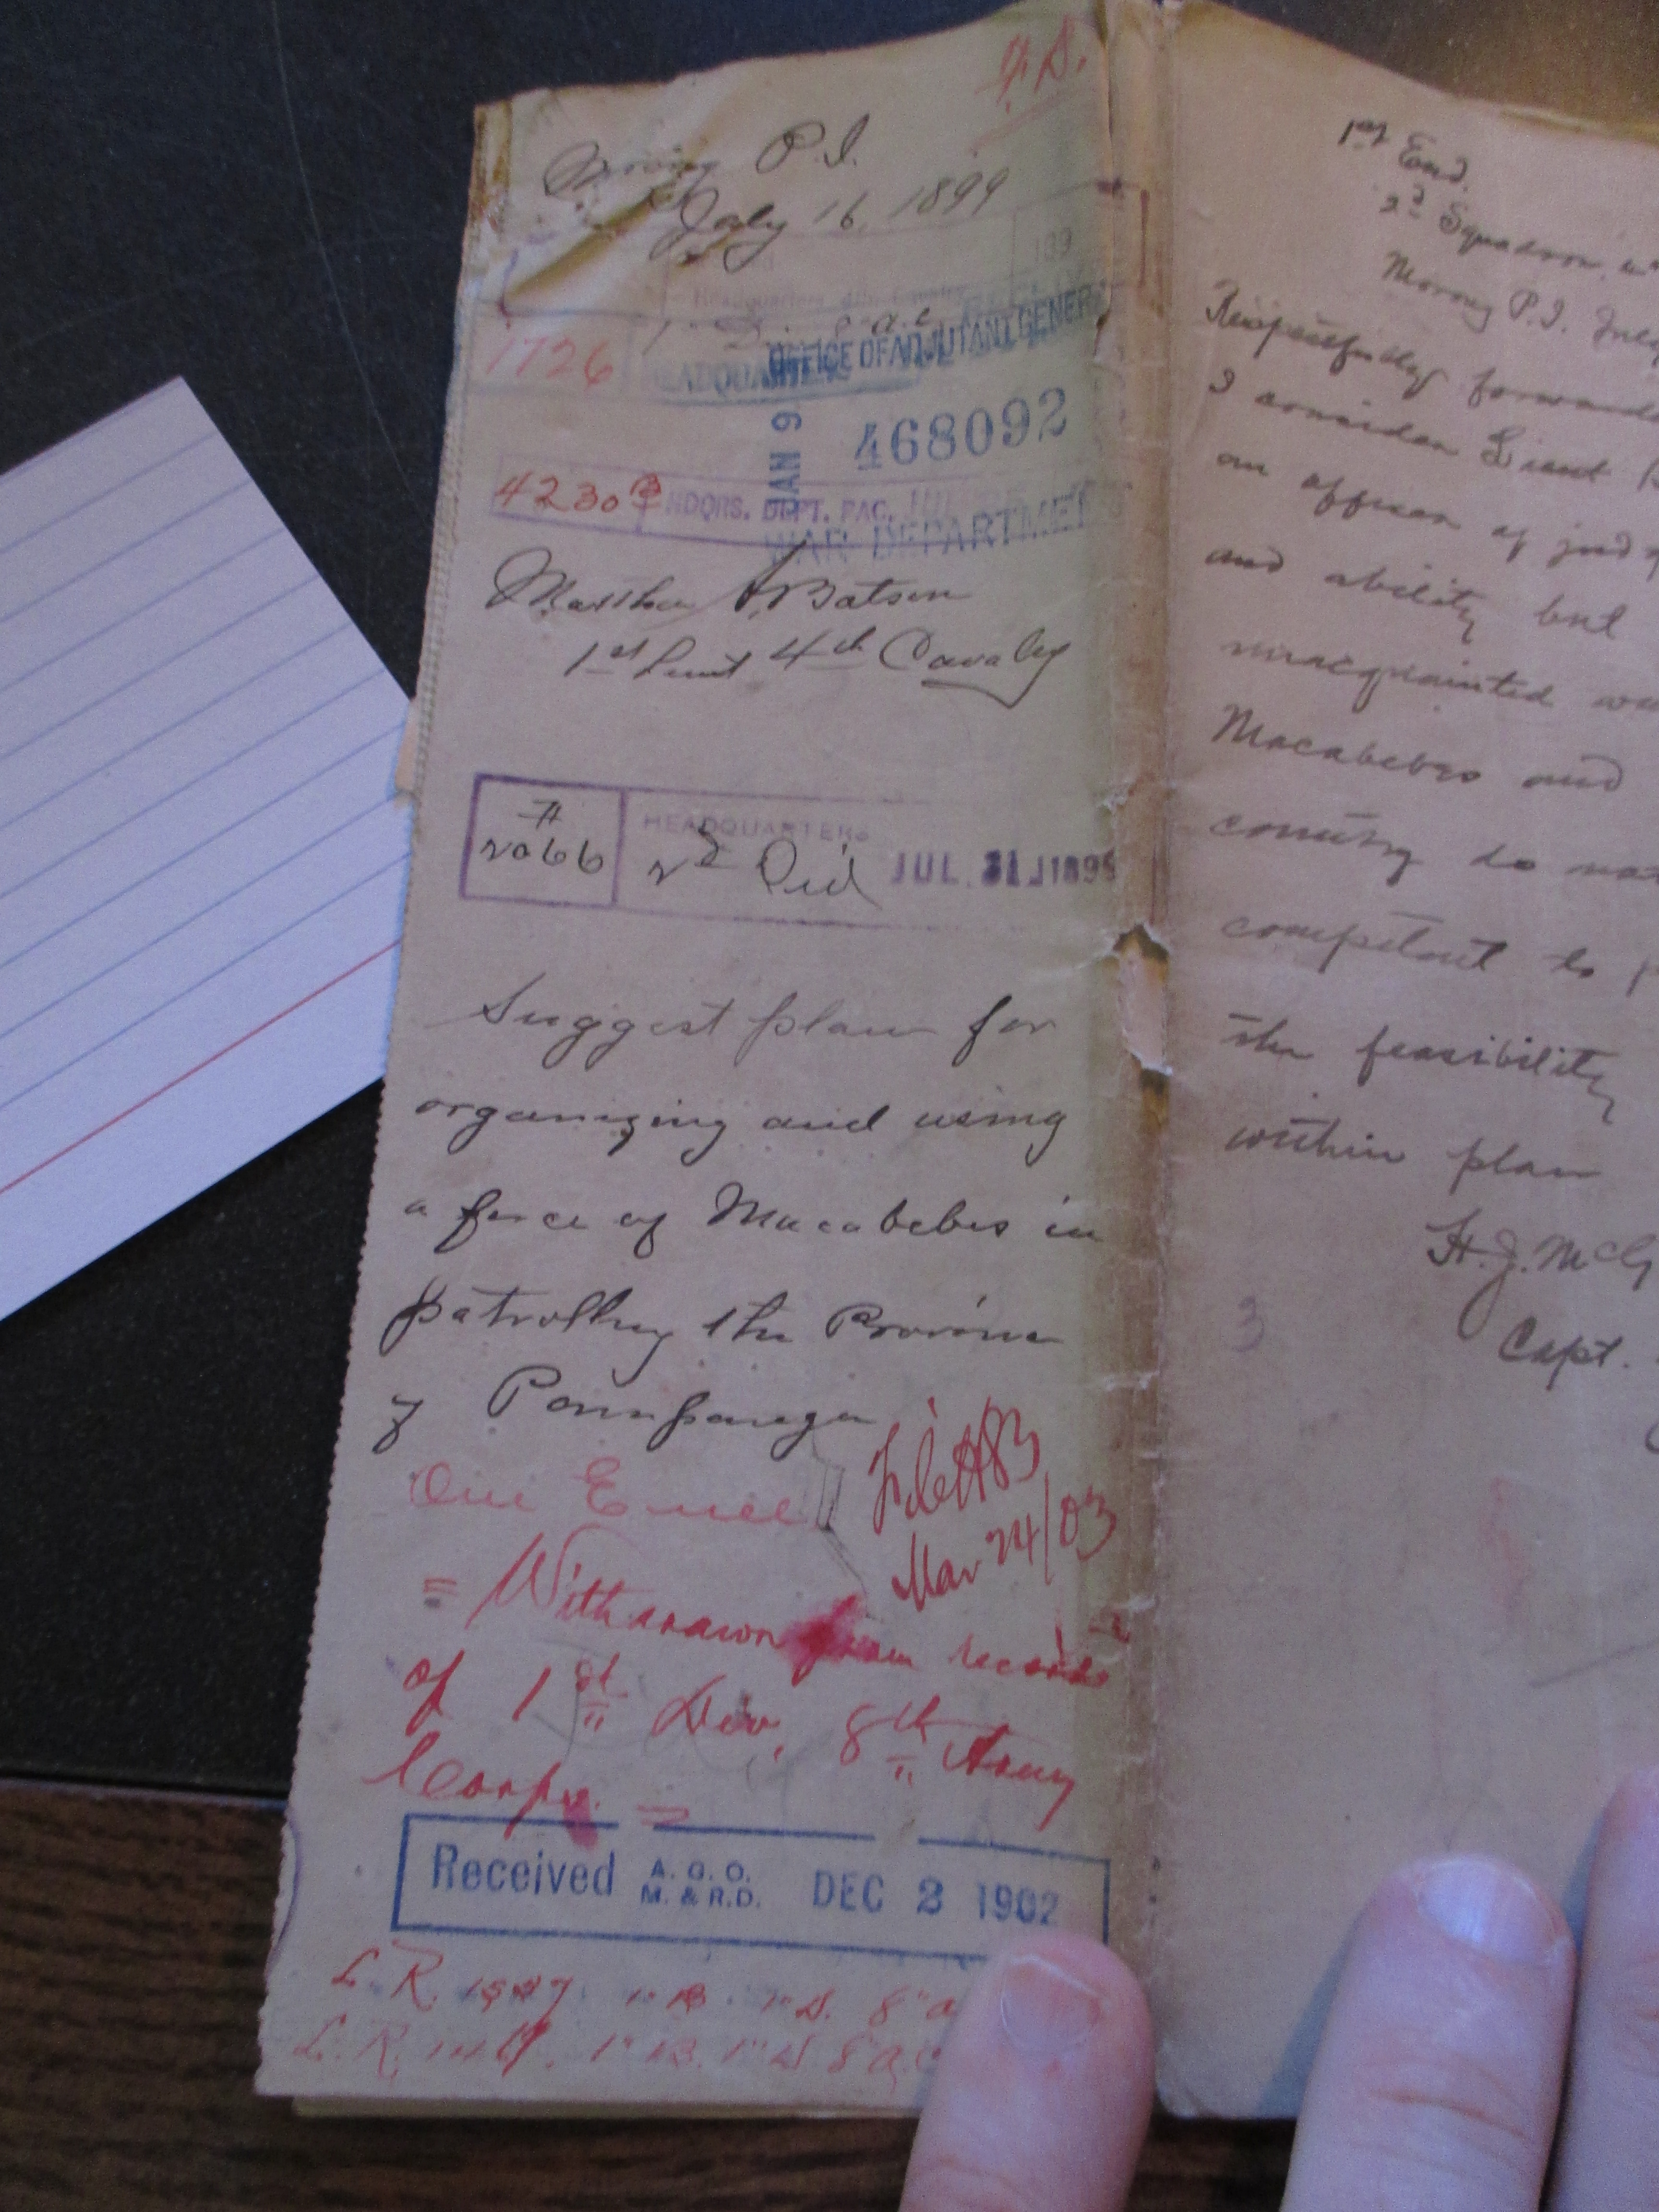 A.S.
Morong P.I.
July 16, 1899
189
Headquarters 4th Cavalry
1726
HEADQUARTERS
OFFICE OF ADJUTANT GENERA
JAN 9
468092
4230 B HDQRS. DEPT. PAC. JUL
WAR DEPARTMEN
Matthew A. Batson
1st Lieut 4th Cavalry
#
2066
HEADQUARTERS
2d Div JUL 31 1899
Suggest plan for
organizing and using
a force of Macabebes in
patrolling the Province
of Pampanga
One Encl
File
Mar 24/03
= Withdrawn from records
of 1st Div, 8th Army
Corps. =
Received A. G. O. M. & R. D. DEC 2 1902
L. R. 1" B. 1" D. 8" A
L. R. 1" B. 1" D. 8" A.C
1st End.
2d Squadron
Morong P.I. July
Respectfully forwarde
I consider Lieut B
an officer of good
and ability but
unacquainted
Macabebes and
country do not
competent to
the feasibility
within plan
H. J. McG
3
Capt.